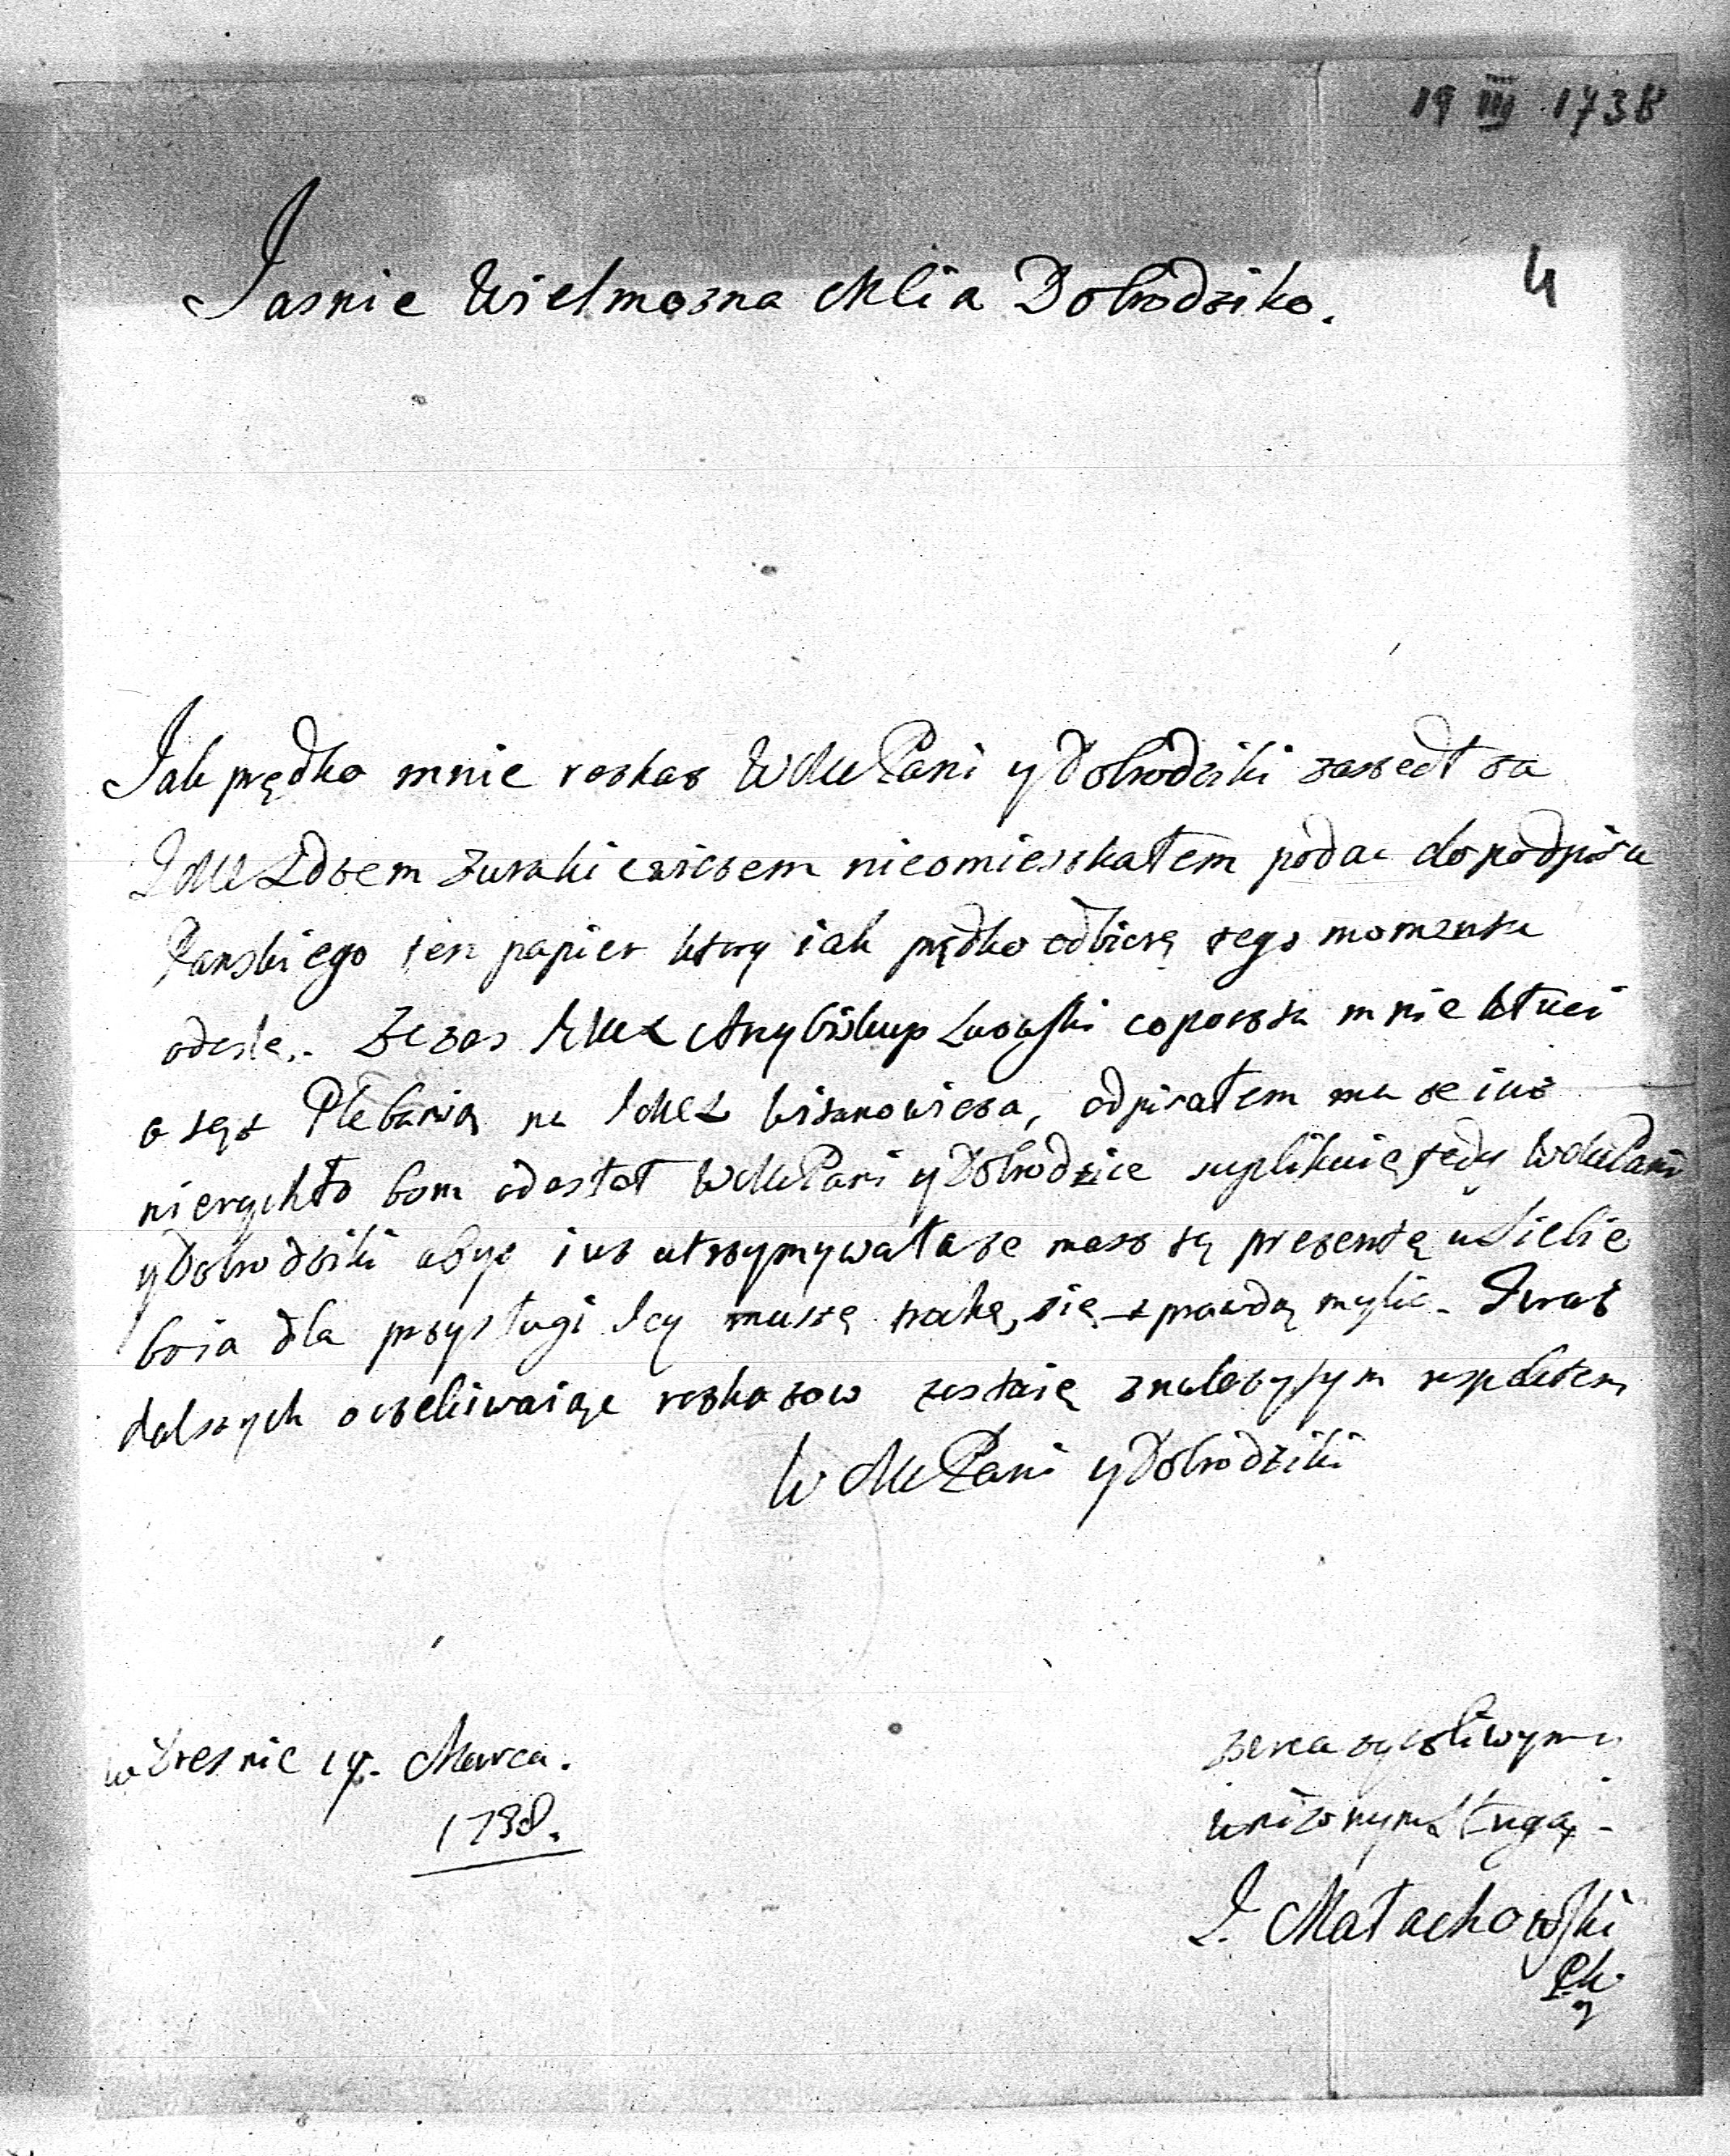 19 III 1738
4
Jasnie Wielmozna Mcia Dobrodziko.
Jak prędko mnie roskaz WMPani y Dobrodziki zaszedł za
JMX Zurakiewiczem nieomieszkałem podac do podpisu
Panskiego ten papier ktory iak prędko odbiorę tego momentu
odesle. Ze zas JMX Arcybiskup Lwowski co poczta mnie kłuci
o tęż Plebanią na JMX odpisałem mu ze iuż
nierychło bom odesłał WMPani y Dobrodzice suplikuię tedy WMPani
y Dobrodziki abys iuz utrzymywała ze masz tą prezentę u Siebie
bo ia dla przysługi Jey muszę trohę się z prawdą mylic. Teraz
dalszych oczekiwaiąc roskazow zostaię z nalezysym respektem
WMPani y Dobrodziki
19. Marca.
1738.
zyczliwym
unizonym Sługą
J. Małachowski